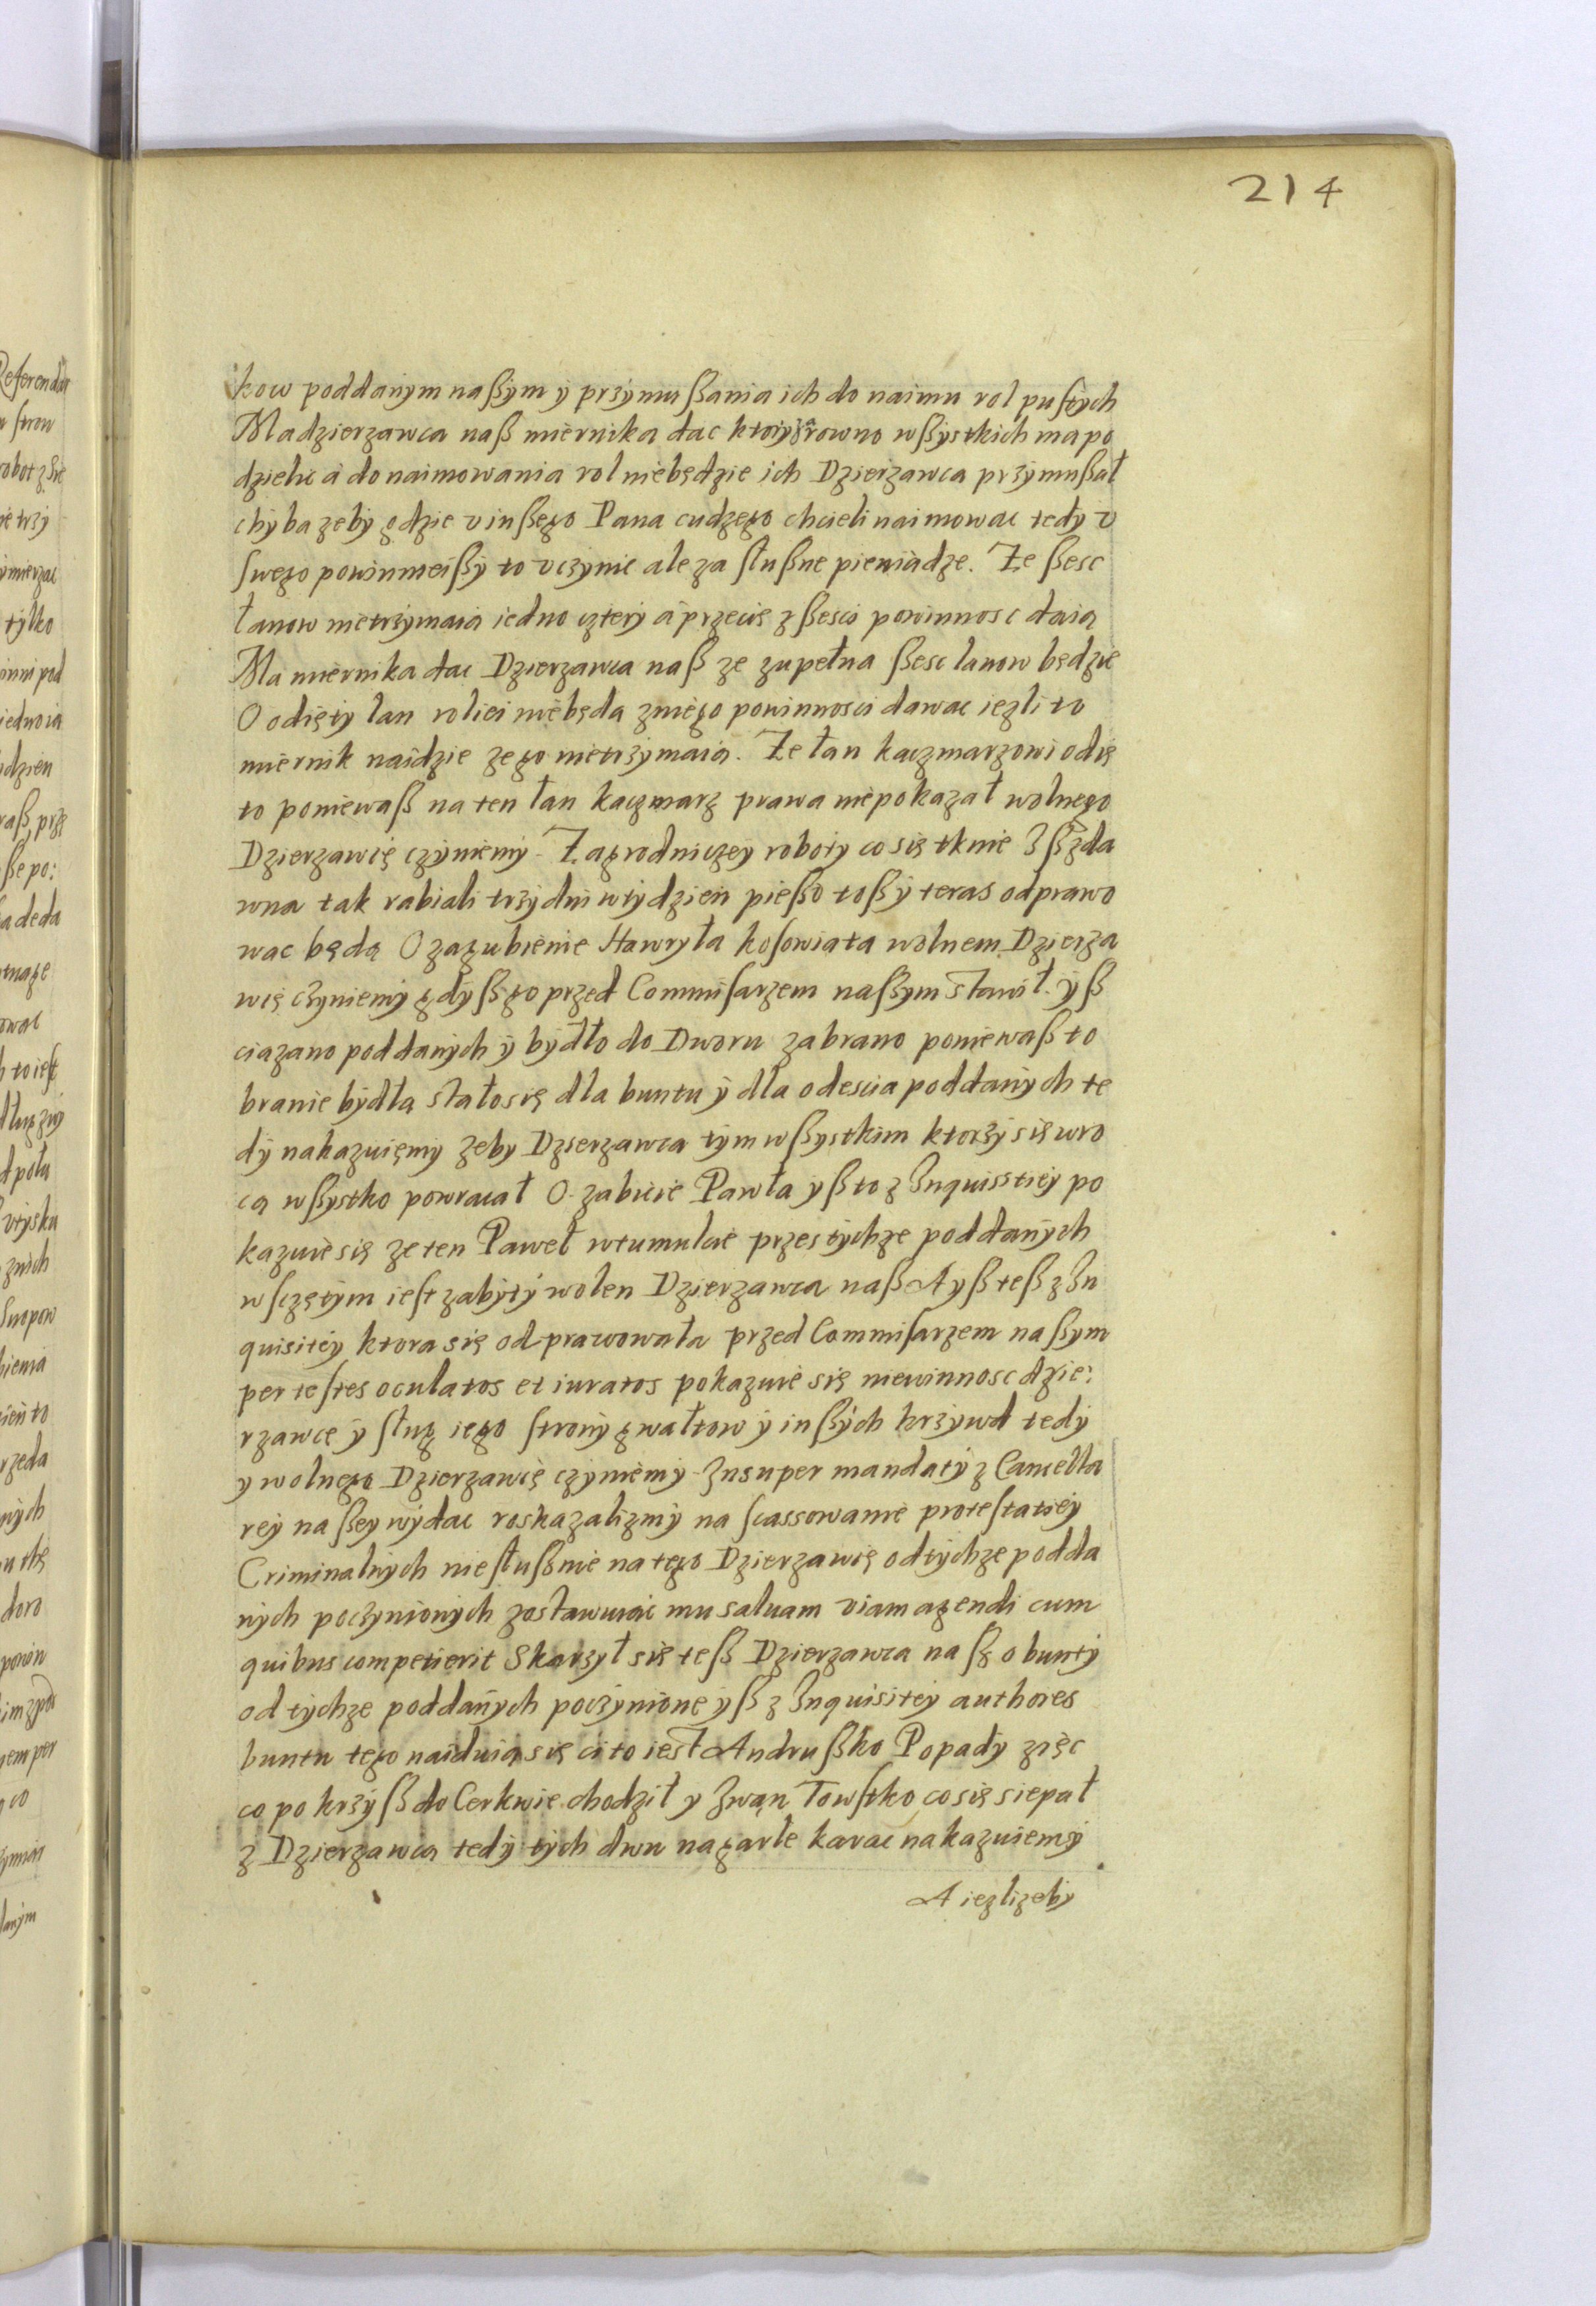 214
kow poddanym naßym y przymußania ich do naimu rol pustych
Madzierzawca naß miernika dac ktory zarowno wßystkich ma po
dzielic a do naimowania rol niebędzie ich Dzierzawca przymußał
chyba zeby gdzie v inßego Pana cudzego chcieli naimowac tedy v
swego powinnieißy to vczynic ale za słußne pieniądze. Ze ßesc
łanow nietrzymaia iedno cztery a przecię z ßesci powinnosc daią
Ma miernika dac Dzierzawca naß ze zupełna ßesc lanow będzie
O odięty lan roliei niebęda zniego powinnosci dawac iezli to
miernik naidzie ze go nietrzymaia. Ze łan kaczmarzowi odię
to poniewaß na ten łan kaczmarz prawa niepokazał wolnego
Dzierzawcę czyniemy. Zagrodniczey roboty co się tknie Iß zda
wna tak rabiali trzy dni w tydzien pießo toß y teras odprawo
wac będą O zagubienie Hawryła kosowiata wolnem Dzierza
wcę czyniemy gdyß go przed Commisarzem naßym stawił. yß
ciazano poddanych y bydło do Dworu zabrano poniewaß to
branie bydła stało się dla buntu y dla odescia poddanych te
dy nakazuięmy zeby Dzierzawca tym wßystkim ktorzy się wro
cą wßystko powracał O zabicie Pawła yß to z Inquisstiey po
kazuie się ze ten Paweł wtumulcie przes tychze poddanych
wsczętym iest zabyty wolen Dzierzawca naß A yß teß z In
quisitiey ktora się odprawowała przed Commisarzem naßym
per testes oculatos et iuratos pokazuie się niewinnosc dzie:
rzawce y sług iego strony gwałtow y inßych krzywd tedy
y wolnego Dzierzawcę czyniemy Insuper mandaty z Cancella
rey naßey wydac roskazalizmy na scassowanie protestatiey
Criminalnych niesłußnie na tego Dzierzawcę od tychze podda
nych poczynionych zostawuiac mu saluam viam agendi cum
quibus competierit Skarzył się teß Dzierzawca naß o bunty
od tychze poddanych poczynione yß z Inquisitiey authores
buntu tego naiduią się ci to iest Andrußko Popady zięc
co po krzyß do Cerkwie chodził y Iwan Towstko co się siepał
z Dzierzawca tedy tych dwu na garle karac nakazuiemy
A iezlizeby